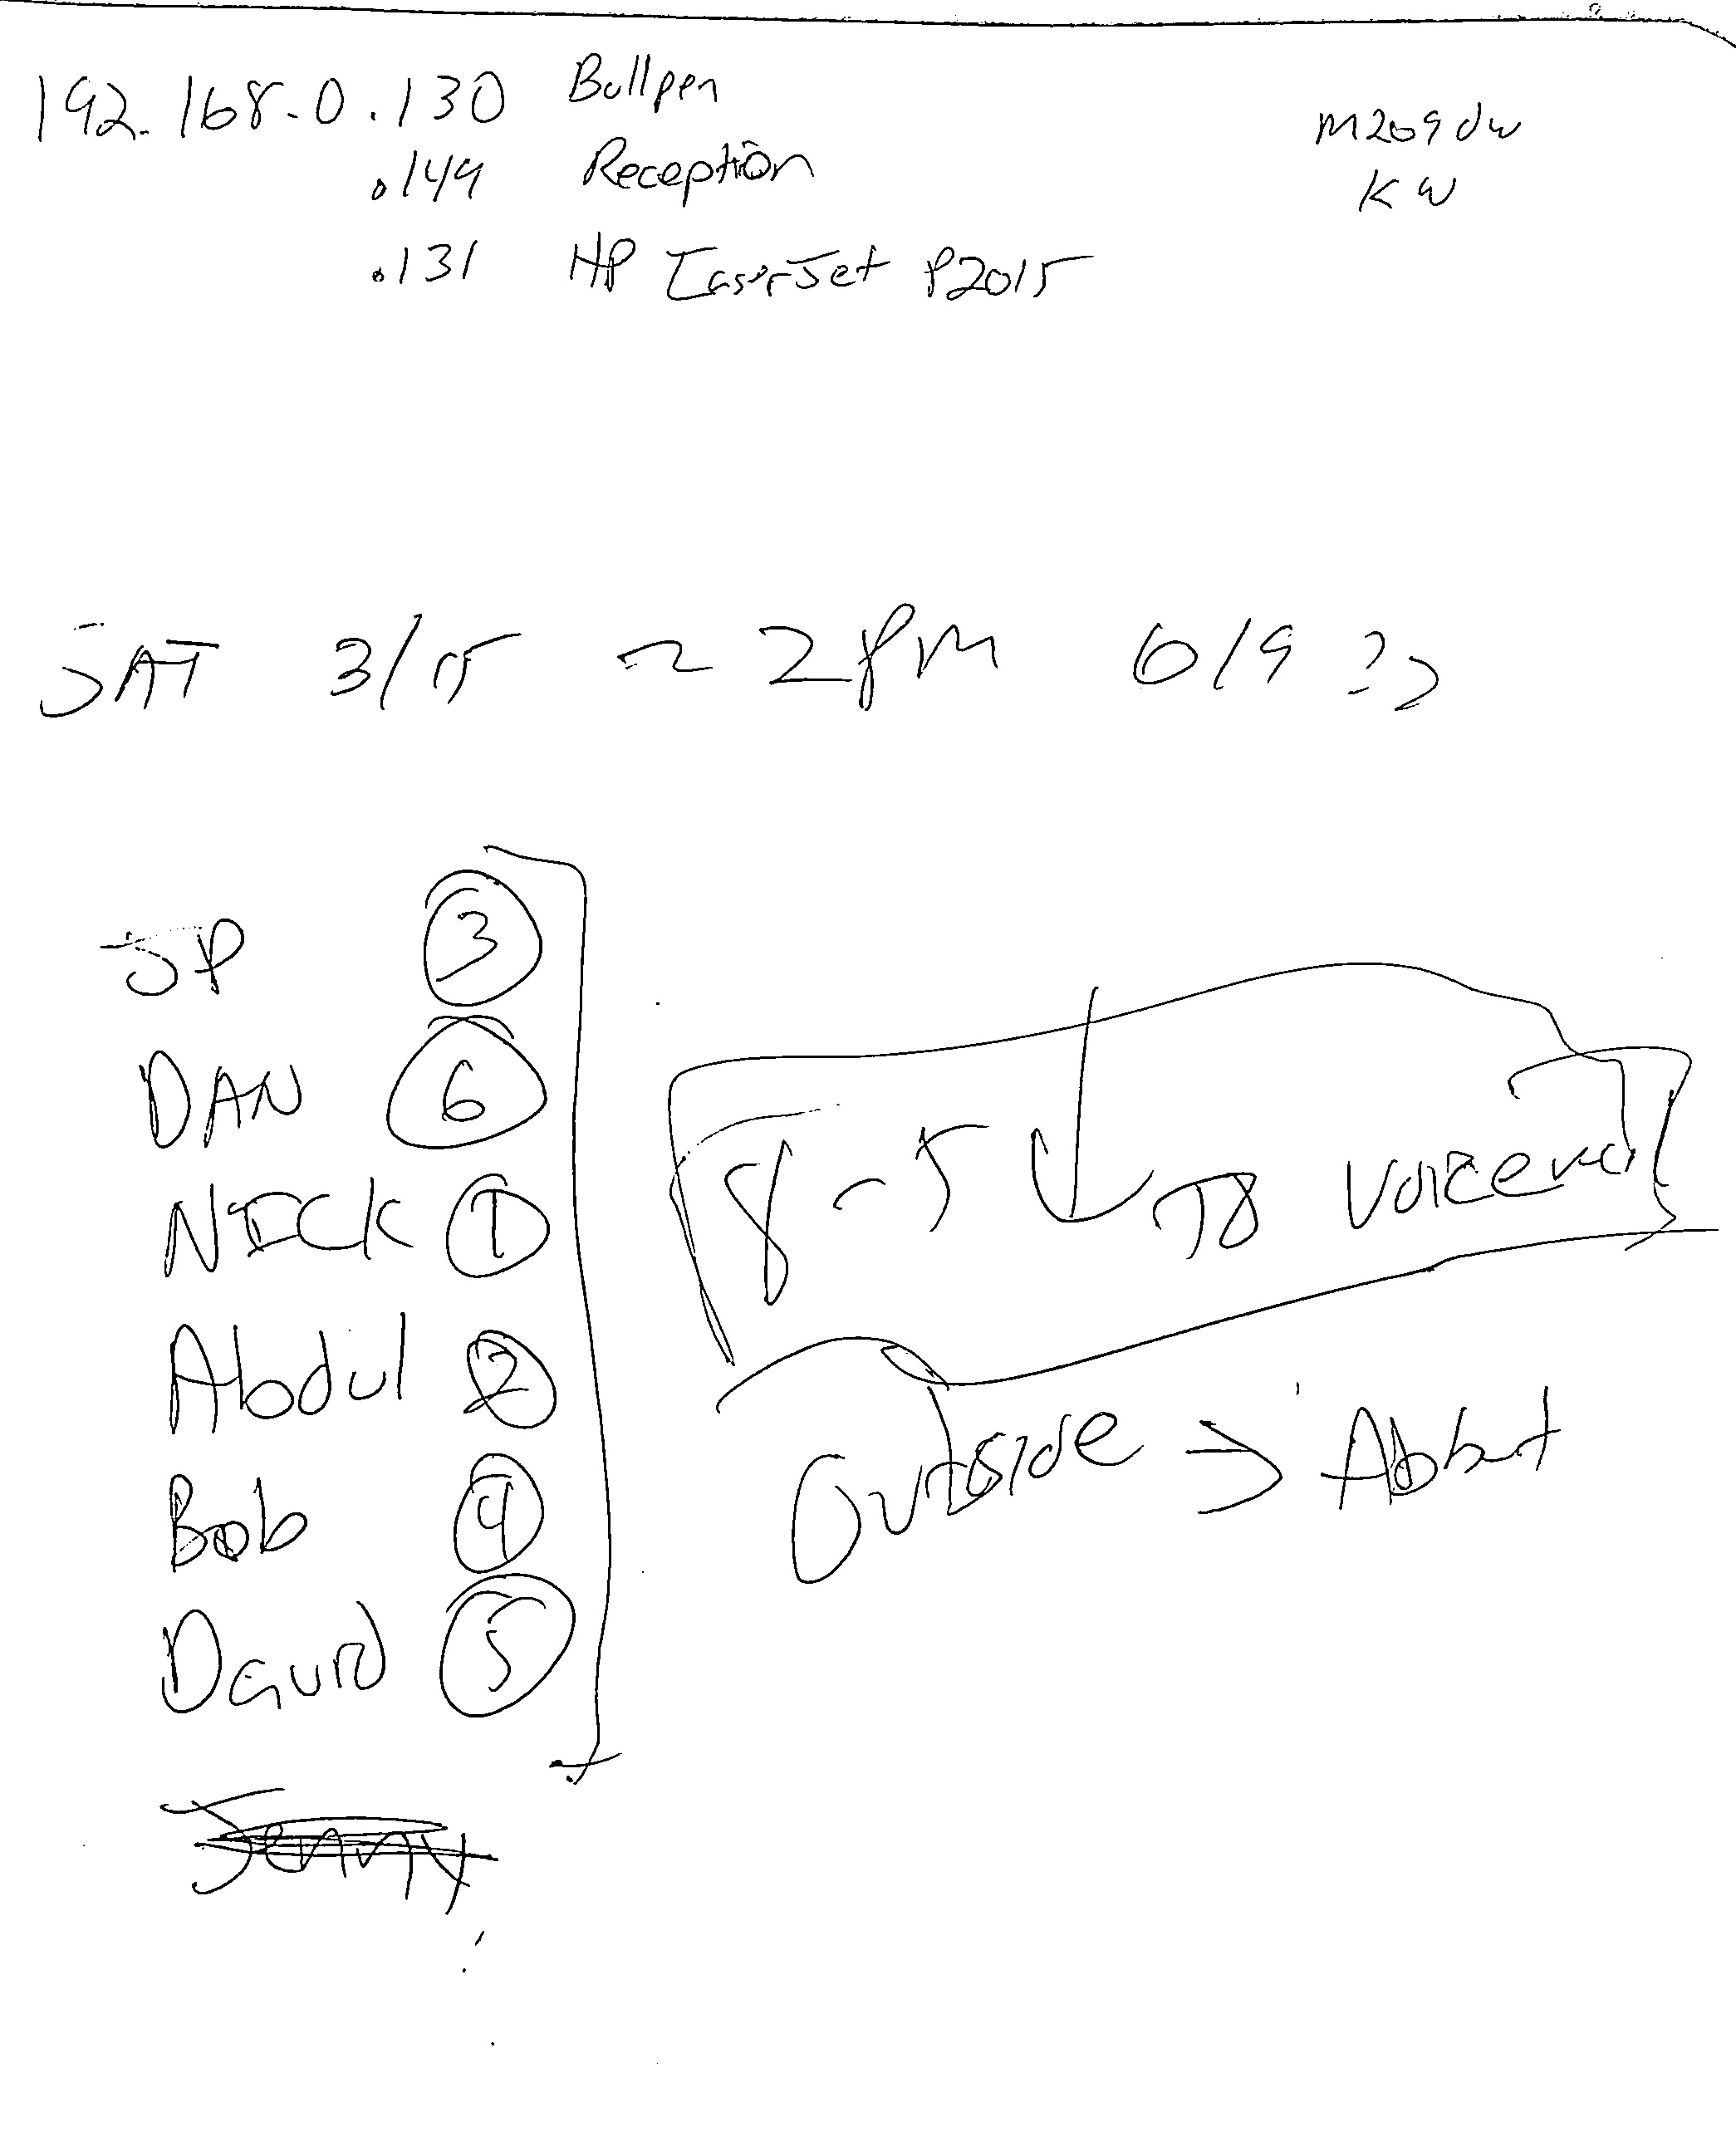 192.168.0.130 Bullpen
.149 Reception
.131 HP LaserJet P2015
M209dw
KW
SAT 3/15 ~ 2PM 6/9 ??
JP 3
DAN 6
NICK 1
Abdul 2
Bob 4
David 5
Jenny
8-5 ↓ TO Voicemail
Outside →